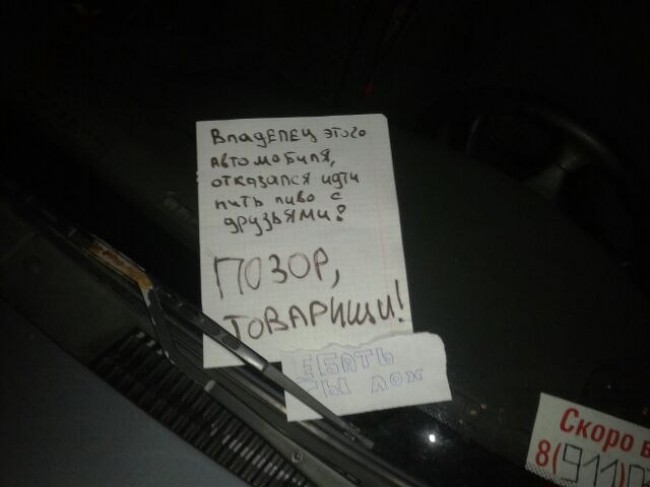 ВладЕЛЕЦ этого
автомобиля,
отказался идти
пить пиво с
друзьями!
ПОЗОР,
ТОВАРИЩИ!
ЕБАТЬ
ТЫ ЛОХ
Скоро в
8(911)